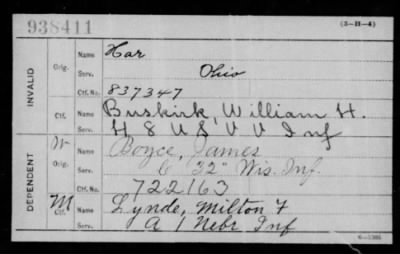 938411
(3-II-4)
INVALID
Orig.
Name Har
Serv. Ohio
Ctf. No. 837347
Ctf.
Name Buskirk, William H.
Serv. H 8 U S V V Inf
DEPENDENT
W
Orig.
Name Boyce, James
Serv. C 32" Wis. Inf.
Ctf. No. 722163
M
Ctf.
Name Lynde, Milton F
Serv. A 1 Nebr Inf